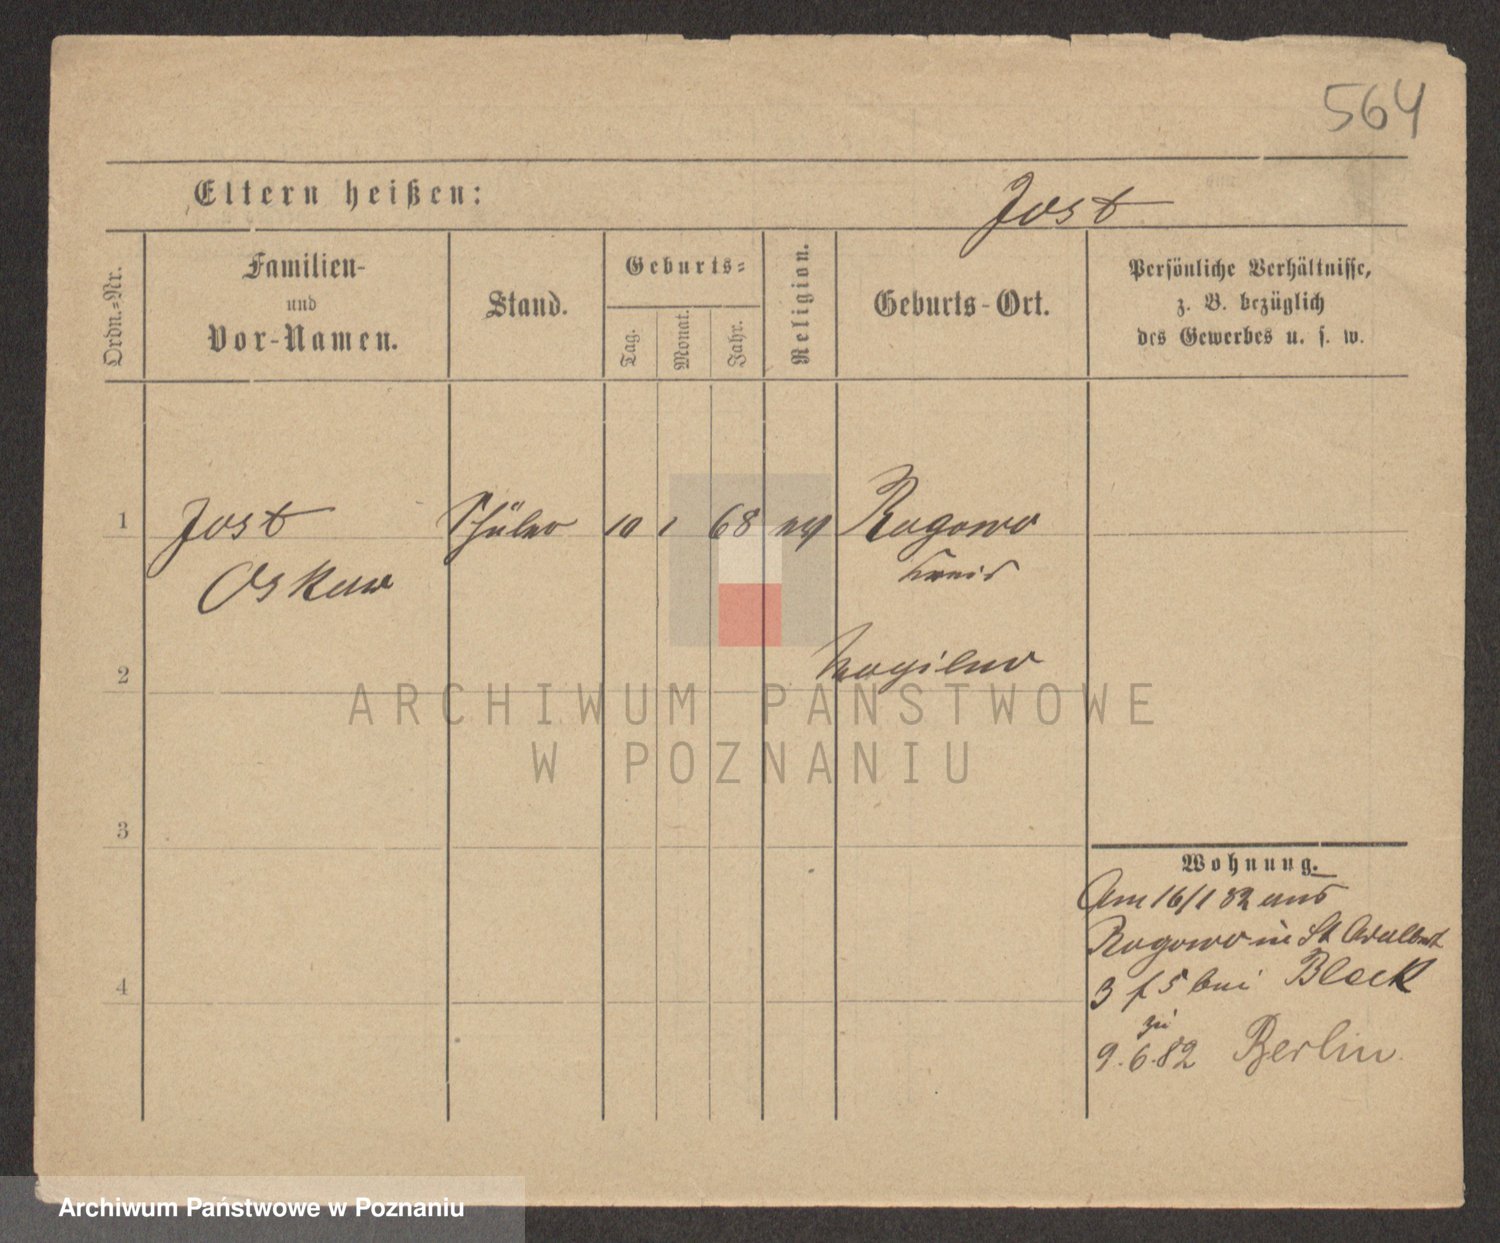 564
Eltern heißen:
Jost
Ordn.-Nr.
Familien-
und
Vor-Namen.
Stand.
Geburts-
Tag.
Monat.
Jahr.
Religion.
Geburts-Ort.
Persönliche Verhältnisse,
z. B. bezüglich
des Gewerbes u. s. w.
1
Jost
Schüler
10
1
68
Rogowo
Oskar
Kreis
Mogilno
2
ARCHIWUM PAŃSTWOWE
W POZNANIU
3
Wohnung.
Am 16/1 82 aus
Rogowo in St Adalbert
3 f 5 bei Block
4
zu
9.6.82 Berlin.
Archiwum Państwowe w Poznaniu